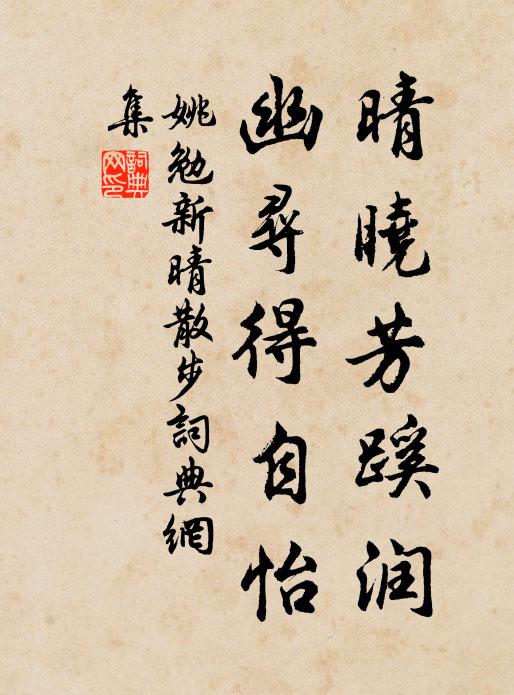 晴曉芳蹊润
幽尋得自怡
姚勉新晴散步詞典網
集
詞典
网印